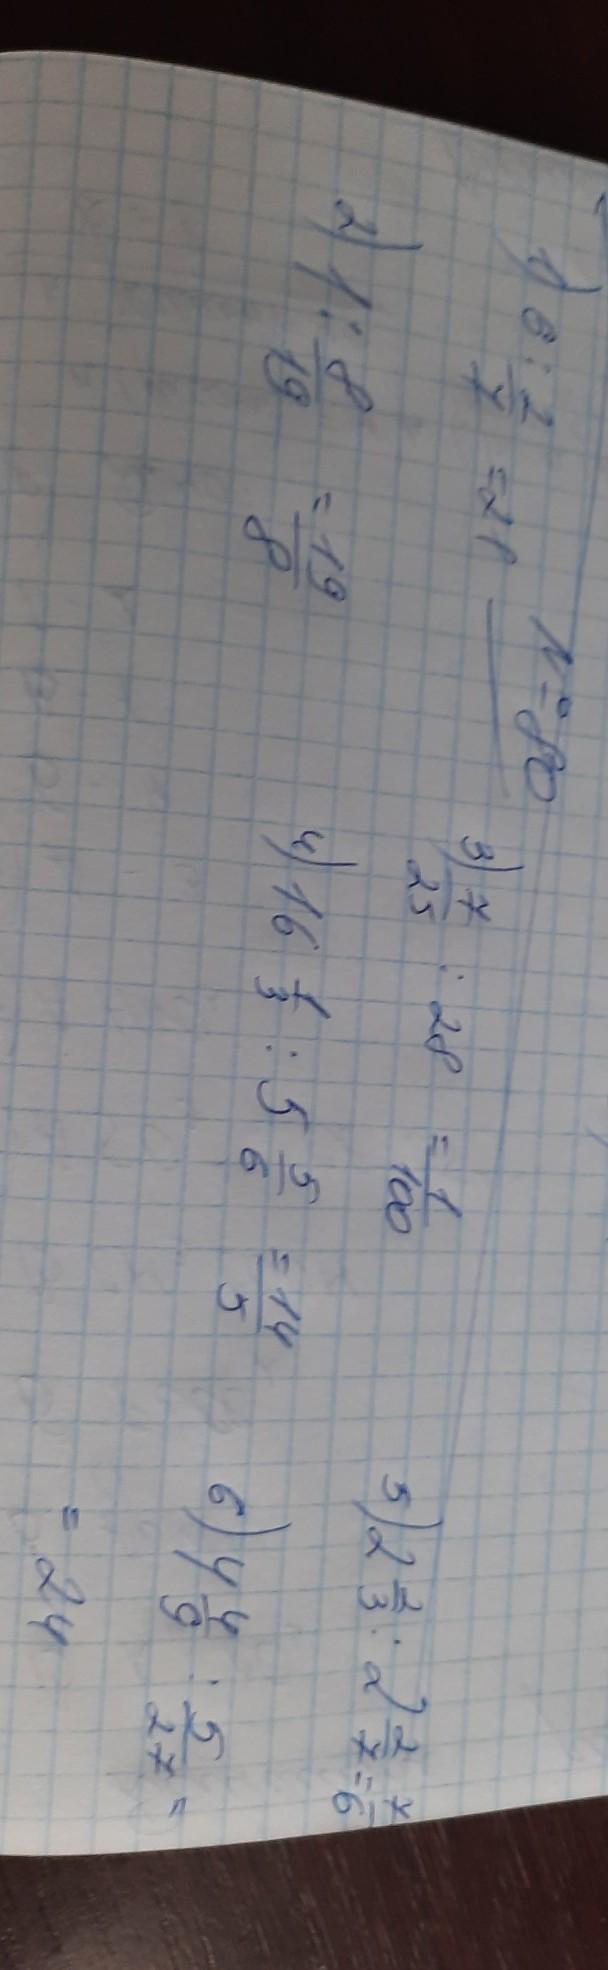 № 80
1) 6 : 2/7 = 21
2) 1 : 8/19 = 19/8
3) 7/25 : 28 = 1/100
4) 16 1/3 : 5 5/6 = 14/5
5) 2 2/3 : 2 2/7 = 7/6
6) 4 4/9 : 5/27 =
= 24